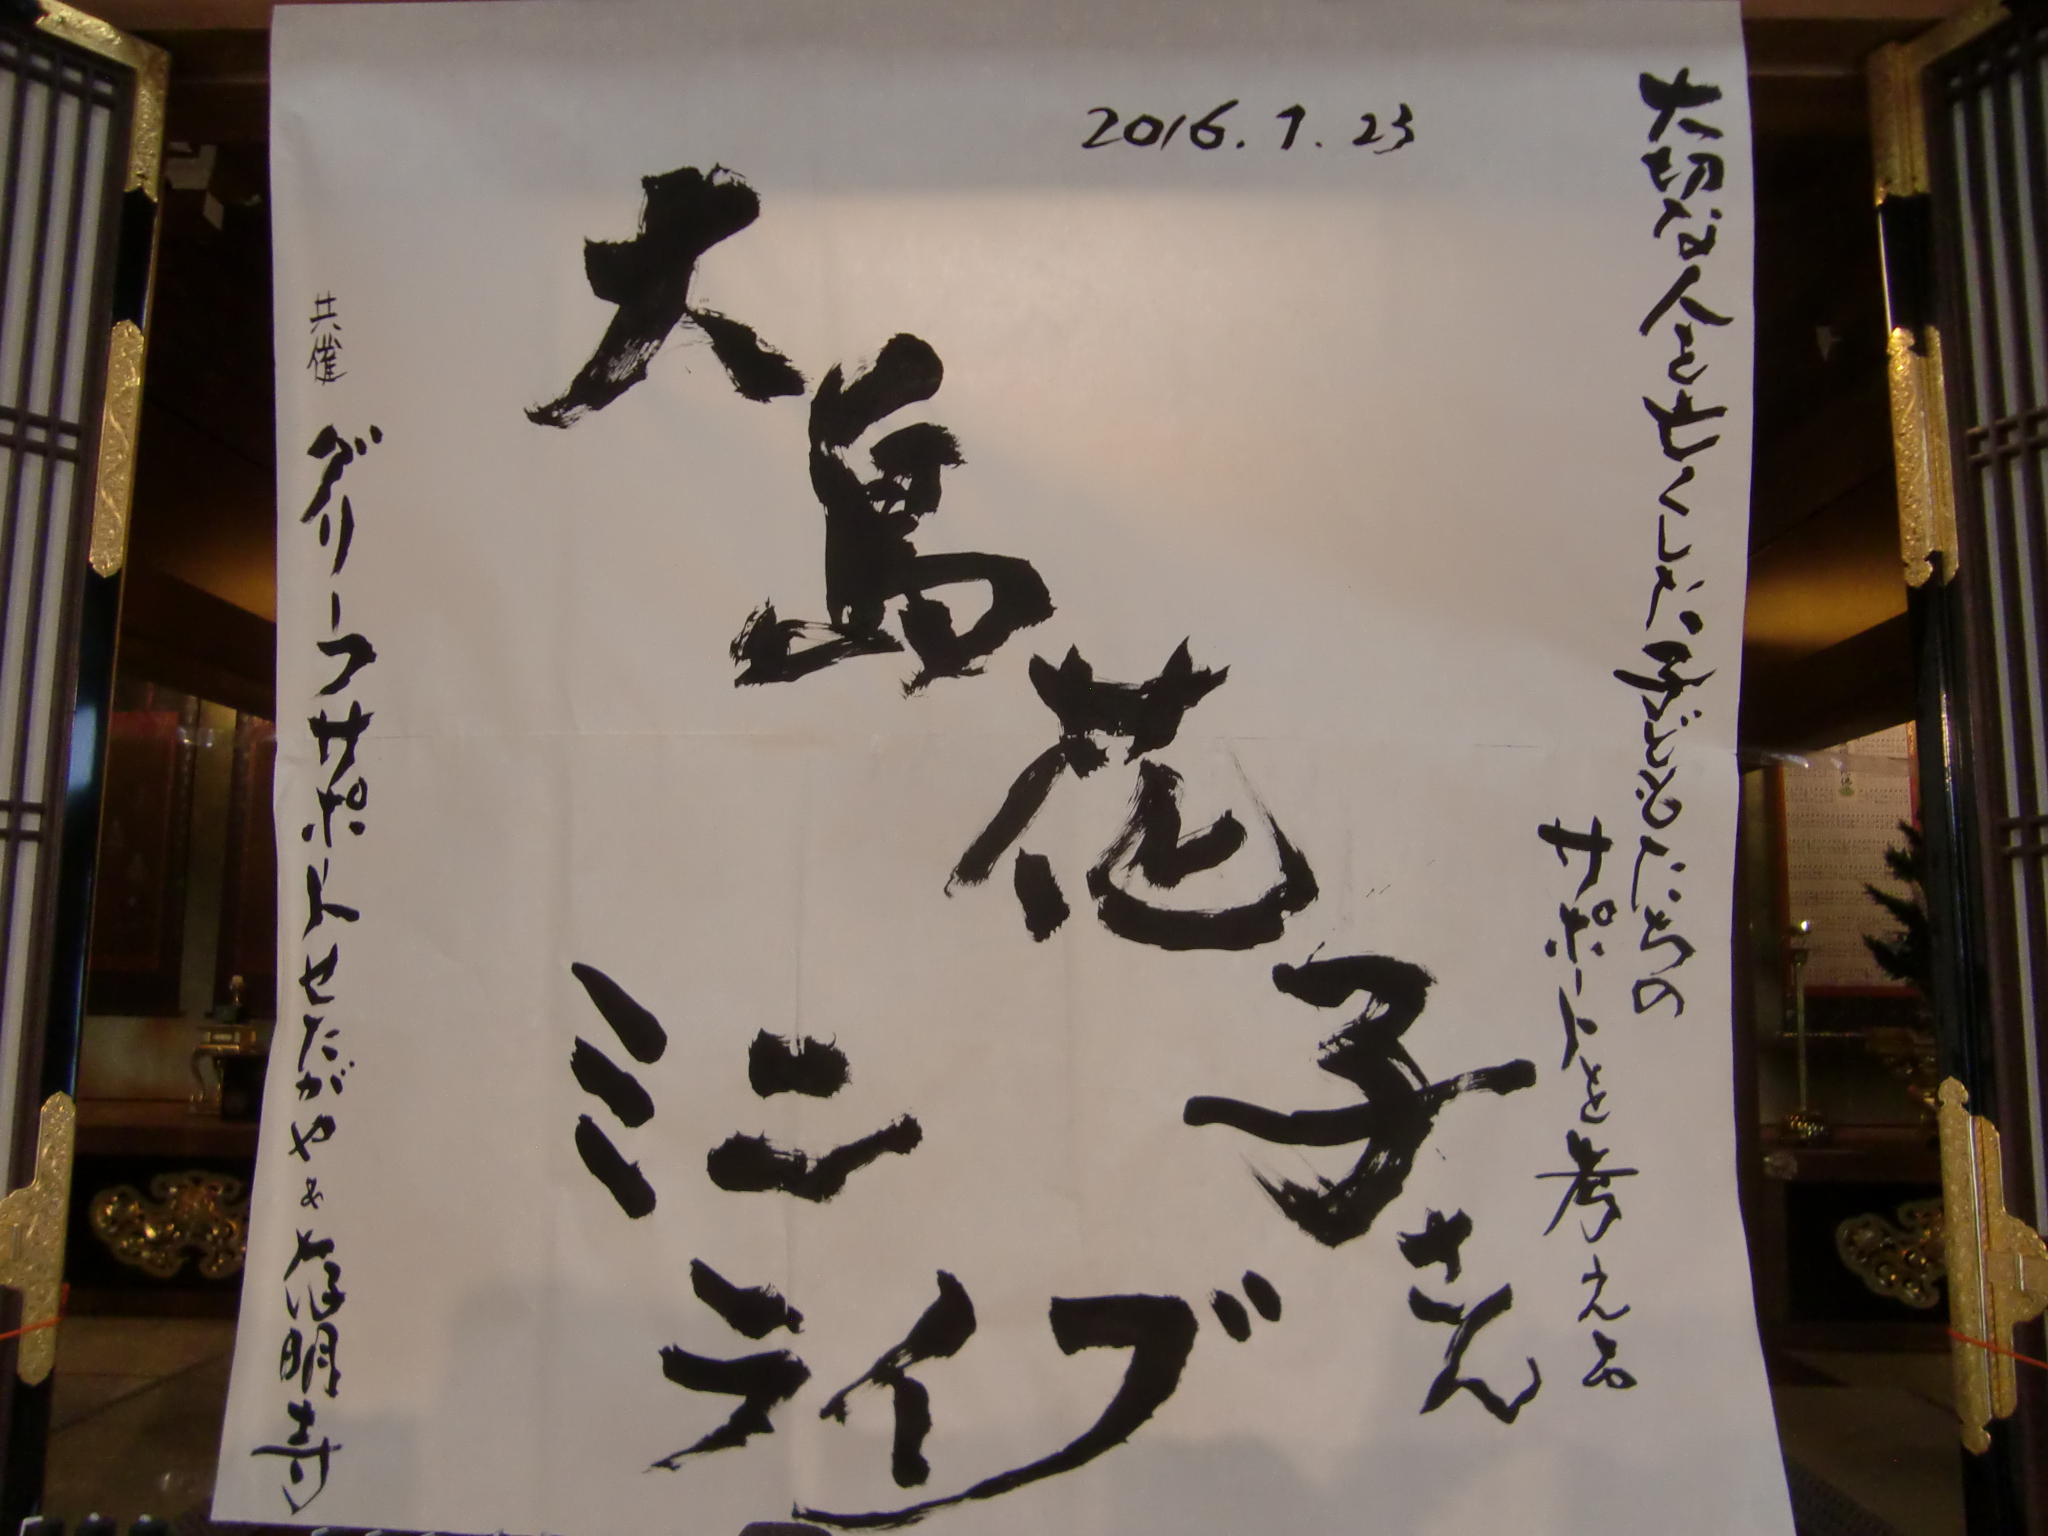 2016.7.23
大切な人を亡くした子どもたちの
サポートを考える
大島花子さん
ミニ
ライブ
共催 グリーフサポートせたがや&存明寺